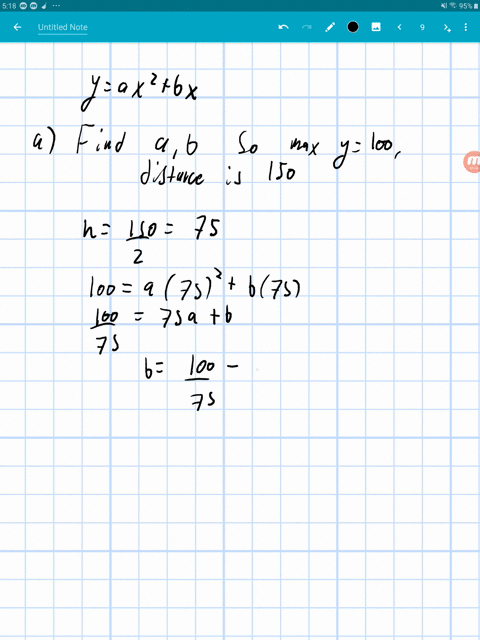 5:18 95%
Untitled Note 9
y=ax²+bx
a) Find a,b so max y=100,
distance is 150
h= 150/2 = 75
100= a(75)²+ b(75)
100/75 = 75a +b
b= 100/75 -